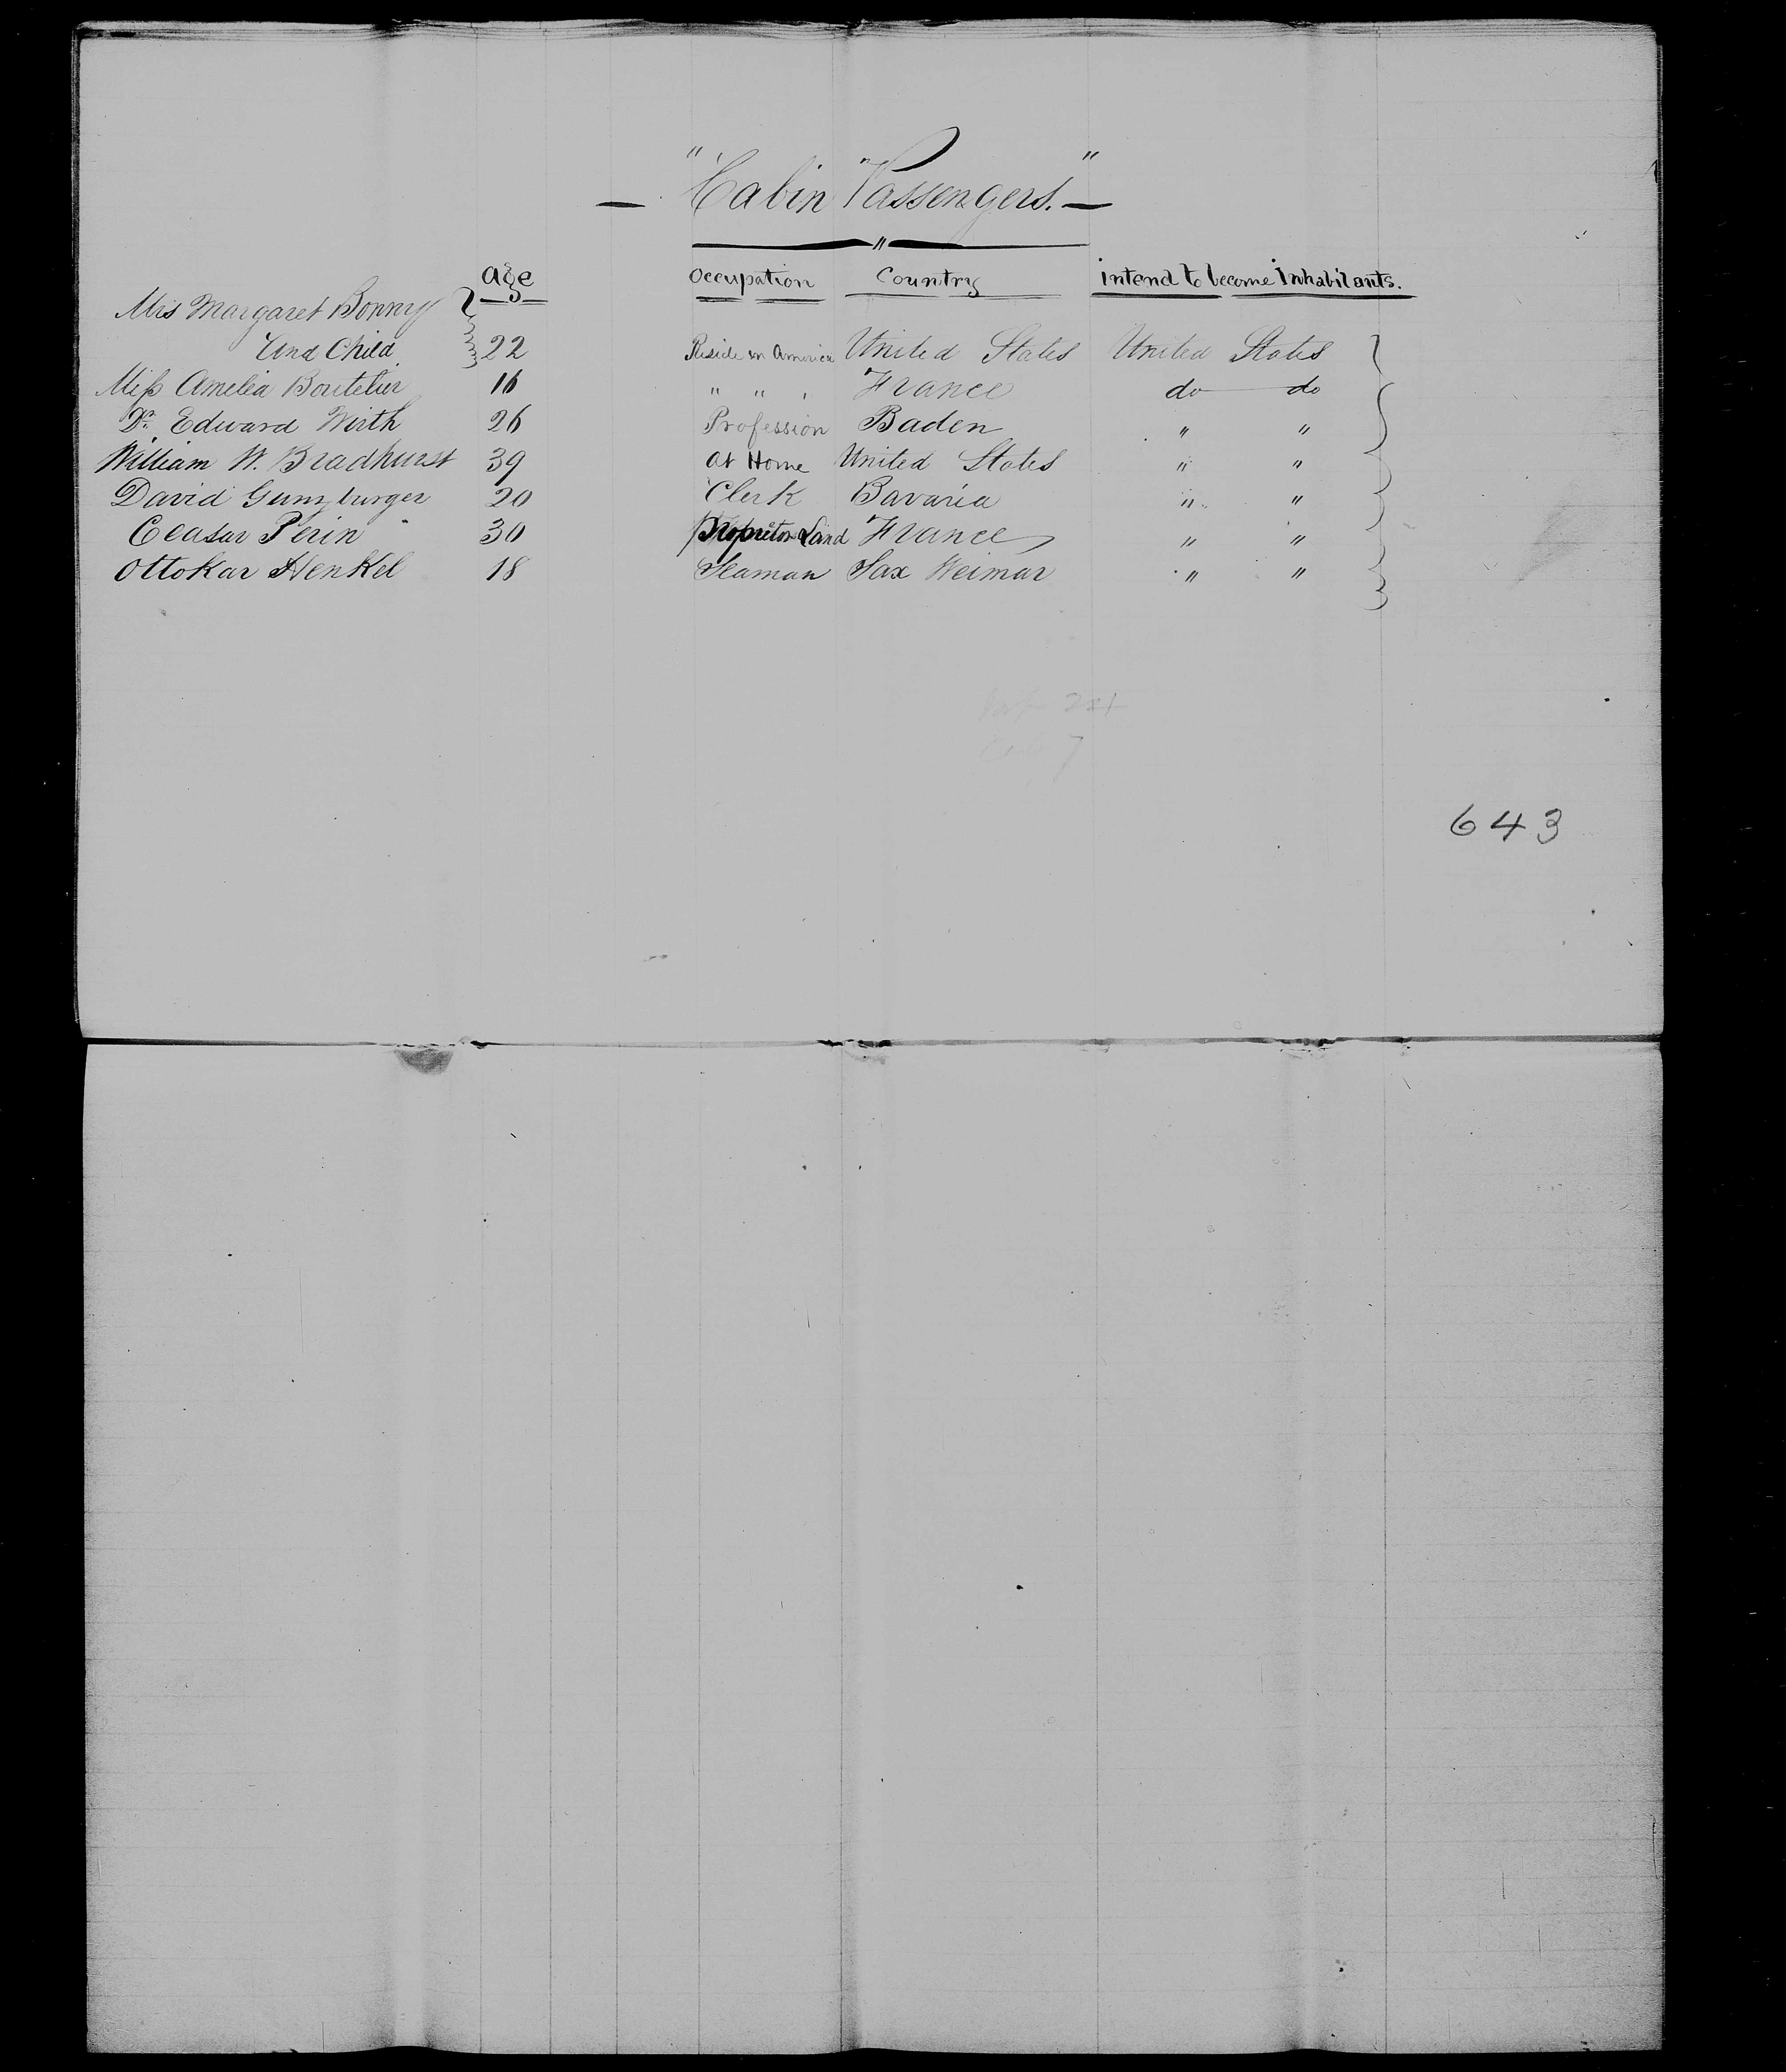 "Cabin Passengers."
age Occupation Country intend to become Inhabitants.
Mrs Margaret Bonny
And Child 22 Reside in America United States United States
Miss Amelia Boutelier 16 " " " France do do
Dr. Edward Wirth 26 Profession Baden " "
William W. Bradhurst 39 At Home United States " "
David Gunzburger 20 Clerk Bavaria " "
Ceasar Perin 30 Proprietor Land France " "
Ottokar Henkel 18 Seaman Sax Weimar " "
643